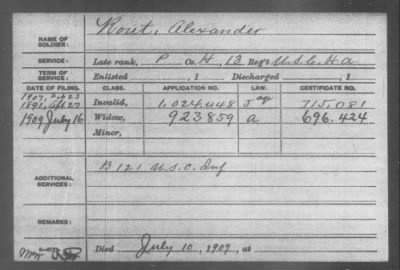 NAME OF SOLDIER: Rout, Alexander
SERVICE: Late rank, P Co. H, 13 Reg't U.S.C.H.A.
TERM OF SERVICE: Enlisted , 1 Discharged , 1
DATE OF FILING. CLASS. APPLICATION NO. LAW. CERTIFICATE NO.
1907, Feb 25
1891, 27 Invalid, 1,024,448 J age 715,081
1909 July 16 Widow, 923859 a 696.424
Minor,
ADDITIONAL SERVICES: B 121 U.S.C. Inf
REMARKS:
Died July 10, 1909, at